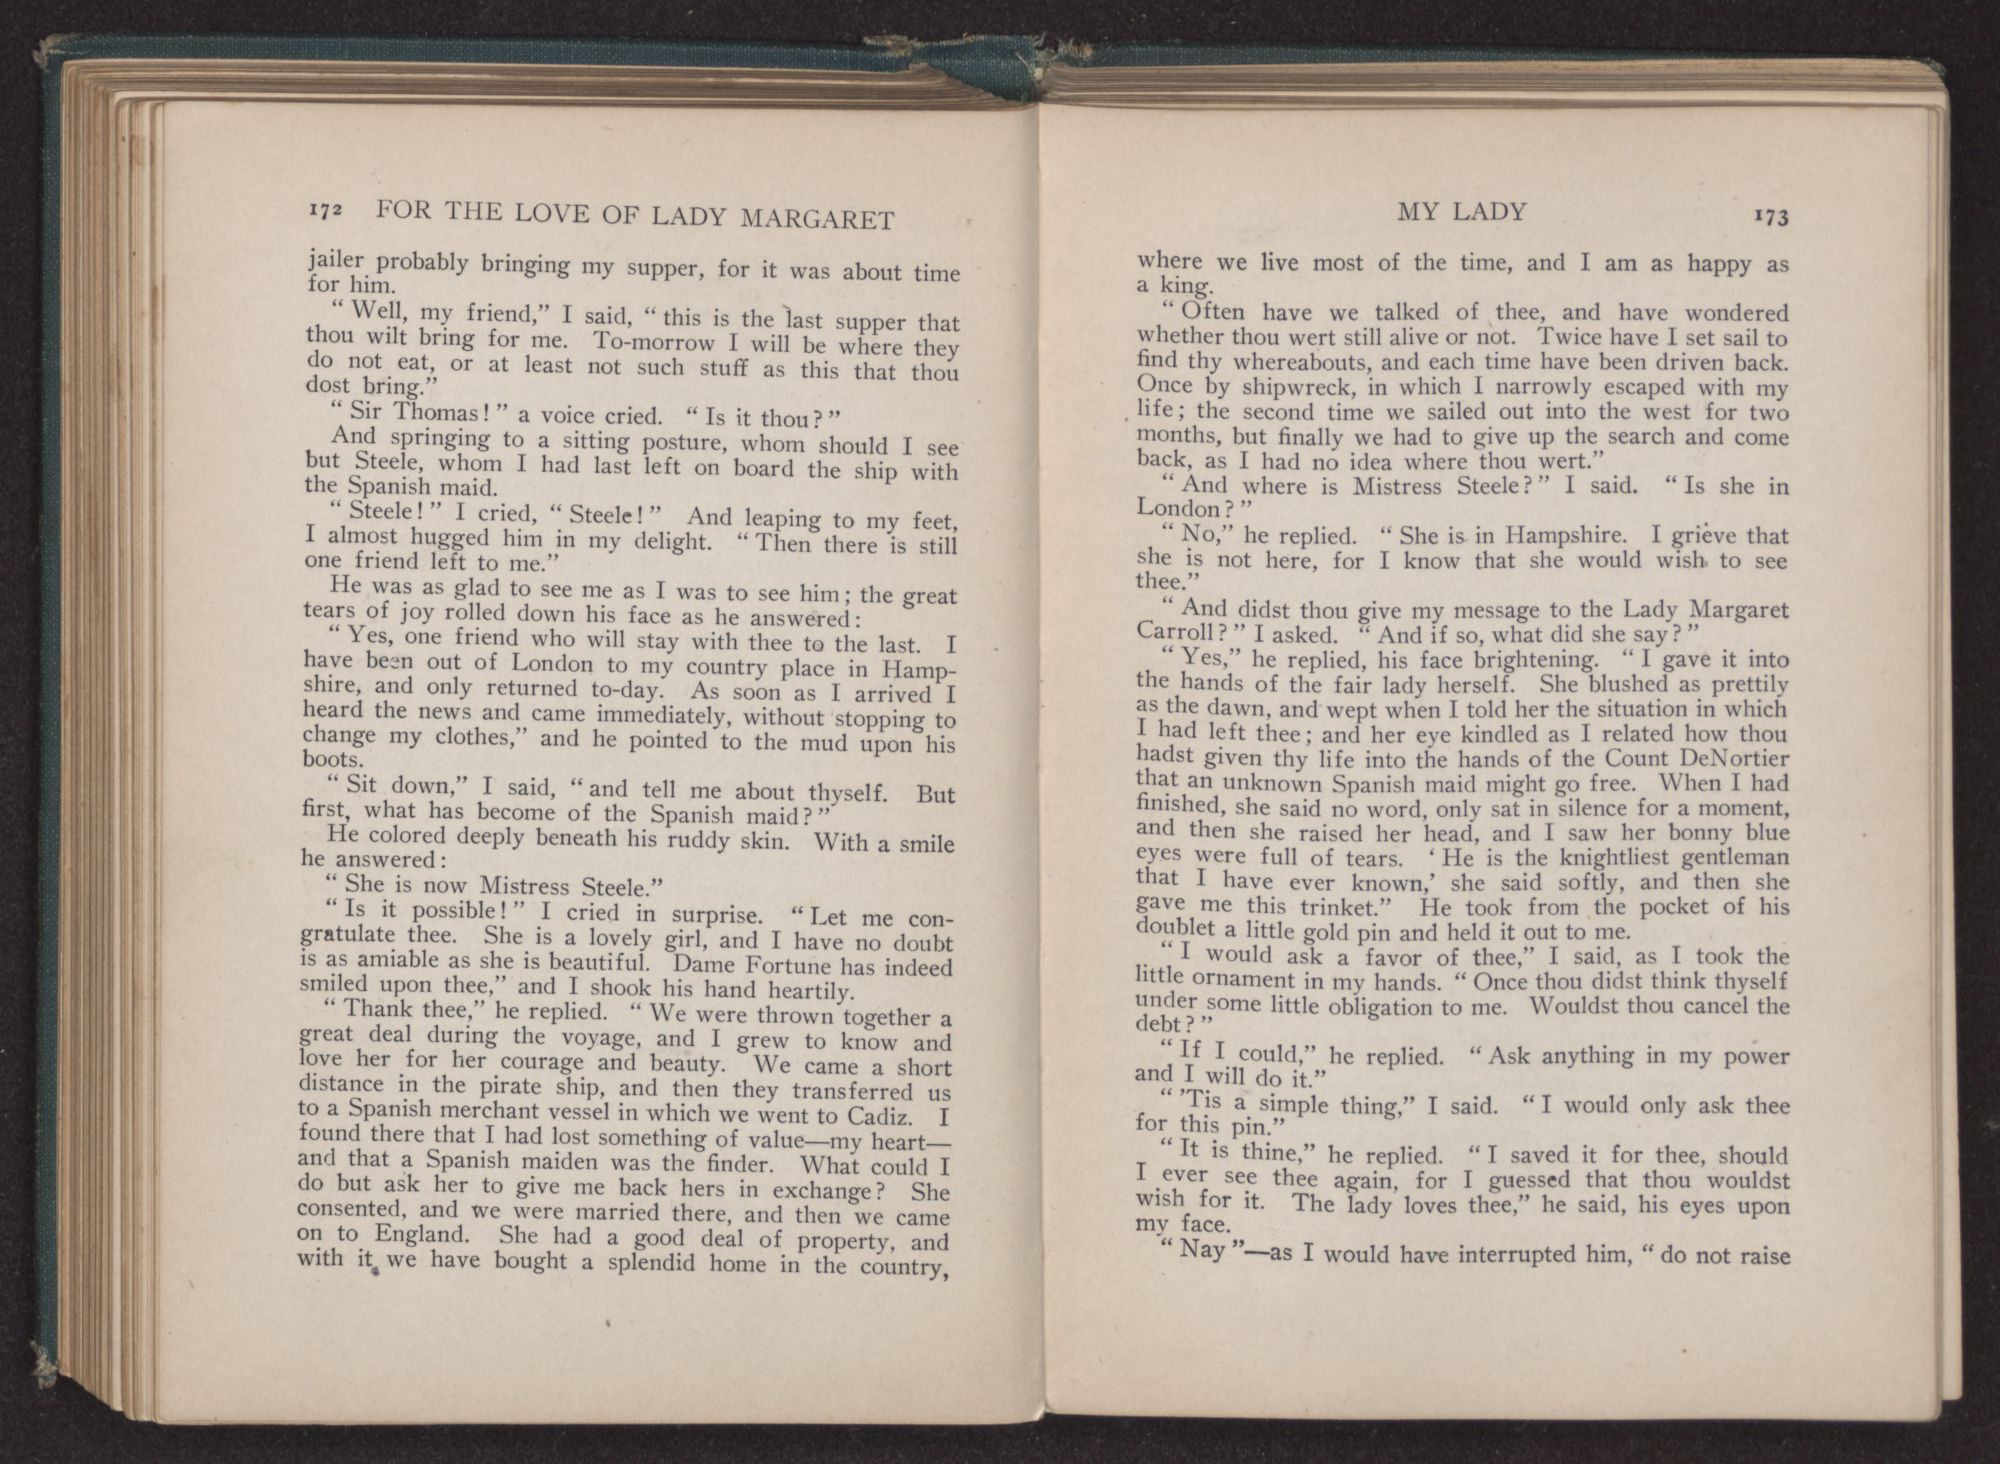 172 FOR THE LOVE OF LADY MARGARET
jailer probably bringing my supper, for it was about time
for him.
“Well, my friend,” I said, “this is the last supper that
thou wilt bring for me. To-morrow I will be where they
do not eat, or at least not such stuff as this that thou
dost bring.”
“Sir Thomas!” a voice cried. “Is it thou?”
And springing to a sitting posture, whom should I see
but Steele, whom I had last left on board the ship with
the Spanish maid.
“Steele!” I cried, “Steele!” And leaping to my feet,
I almost hugged him in my delight. “Then there is still
one friend left to me.”
He was as glad to see me as I was to see him; the great
tears of joy rolled down his face as he answered:
“Yes, one friend who will stay with thee to the last. I
have been out of London to my country place in Hamp-
shire, and only returned to-day. As soon as I arrived I
heard the news and came immediately, without stopping to
change my clothes,” and he pointed to the mud upon his
boots.
“Sit down,” I said, “and tell me about thyself. But
first, what has become of the Spanish maid?”
He colored deeply beneath his ruddy skin. With a smile
he answered:
“She is now Mistress Steele.”
“Is it possible!” I cried in surprise. “Let me con-
gratulate thee. She is a lovely girl, and I have no doubt
is as amiable as she is beautiful. Dame Fortune has indeed
smiled upon thee,” and I shook his hand heartily.
“Thank thee,” he replied. “We were thrown together a
great deal during the voyage, and I grew to know and
love her for her courage and beauty. We came a short
distance in the pirate ship, and then they transferred us
to a Spanish merchant vessel in which we went to Cadiz. I
found there that I had lost something of value—my heart—
and that a Spanish maiden was the finder. What could I
do but ask her to give me back hers in exchange? She
consented, and we were married there, and then we came
on to England. She had a good deal of property, and
with it we have bought a splendid home in the country,
MY LADY 173
where we live most of the time, and I am as happy as
a king.
“Often have we talked of thee, and have wondered
whether thou wert still alive or not. Twice have I set sail to
find thy whereabouts, and each time have been driven back.
Once by shipwreck, in which I narrowly escaped with my
life; the second time we sailed out into the west for two
months, but finally we had to give up the search and come
back, as I had no idea where thou wert.”
“And where is Mistress Steele?” I said. “Is she in
London?”
“No,” he replied. “She is in Hampshire. I grieve that
she is not here, for I know that she would wish to see
thee.”
“And didst thou give my message to the Lady Margaret
Carroll?” I asked. “And if so, what did she say?”
“Yes,” he replied, his face brightening. “I gave it into
the hands of the fair lady herself. She blushed as prettily
as the dawn, and wept when I told her the situation in which
I had left thee; and her eye kindled as I related how thou
hadst given thy life into the hands of the Count DeNortier
that an unknown Spanish maid might go free. When I had
finished, she said no word, only sat in silence for a moment,
and then she raised her head, and I saw her bonny blue
eyes were full of tears. ‘He is the knightliest gentleman
that I have ever known,’ she said softly, and then she
gave me this trinket.” He took from the pocket of his
doublet a little gold pin and held it out to me.
“I would ask a favor of thee,” I said, as I took the
little ornament in my hands. “Once thou didst think thyself
under some little obligation to me. Wouldst thou cancel the
debt?”
“If I could,” he replied. “Ask anything in my power
and I will do it.”
“’Tis a simple thing,” I said. “I would only ask thee
for this pin.”
“It is thine,” he replied. “I saved it for thee, should
I ever see thee again, for I guessed that thou wouldst
wish for it. The lady loves thee,” he said, his eyes upon
my face.
“Nay”—as I would have interrupted him, “do not raise